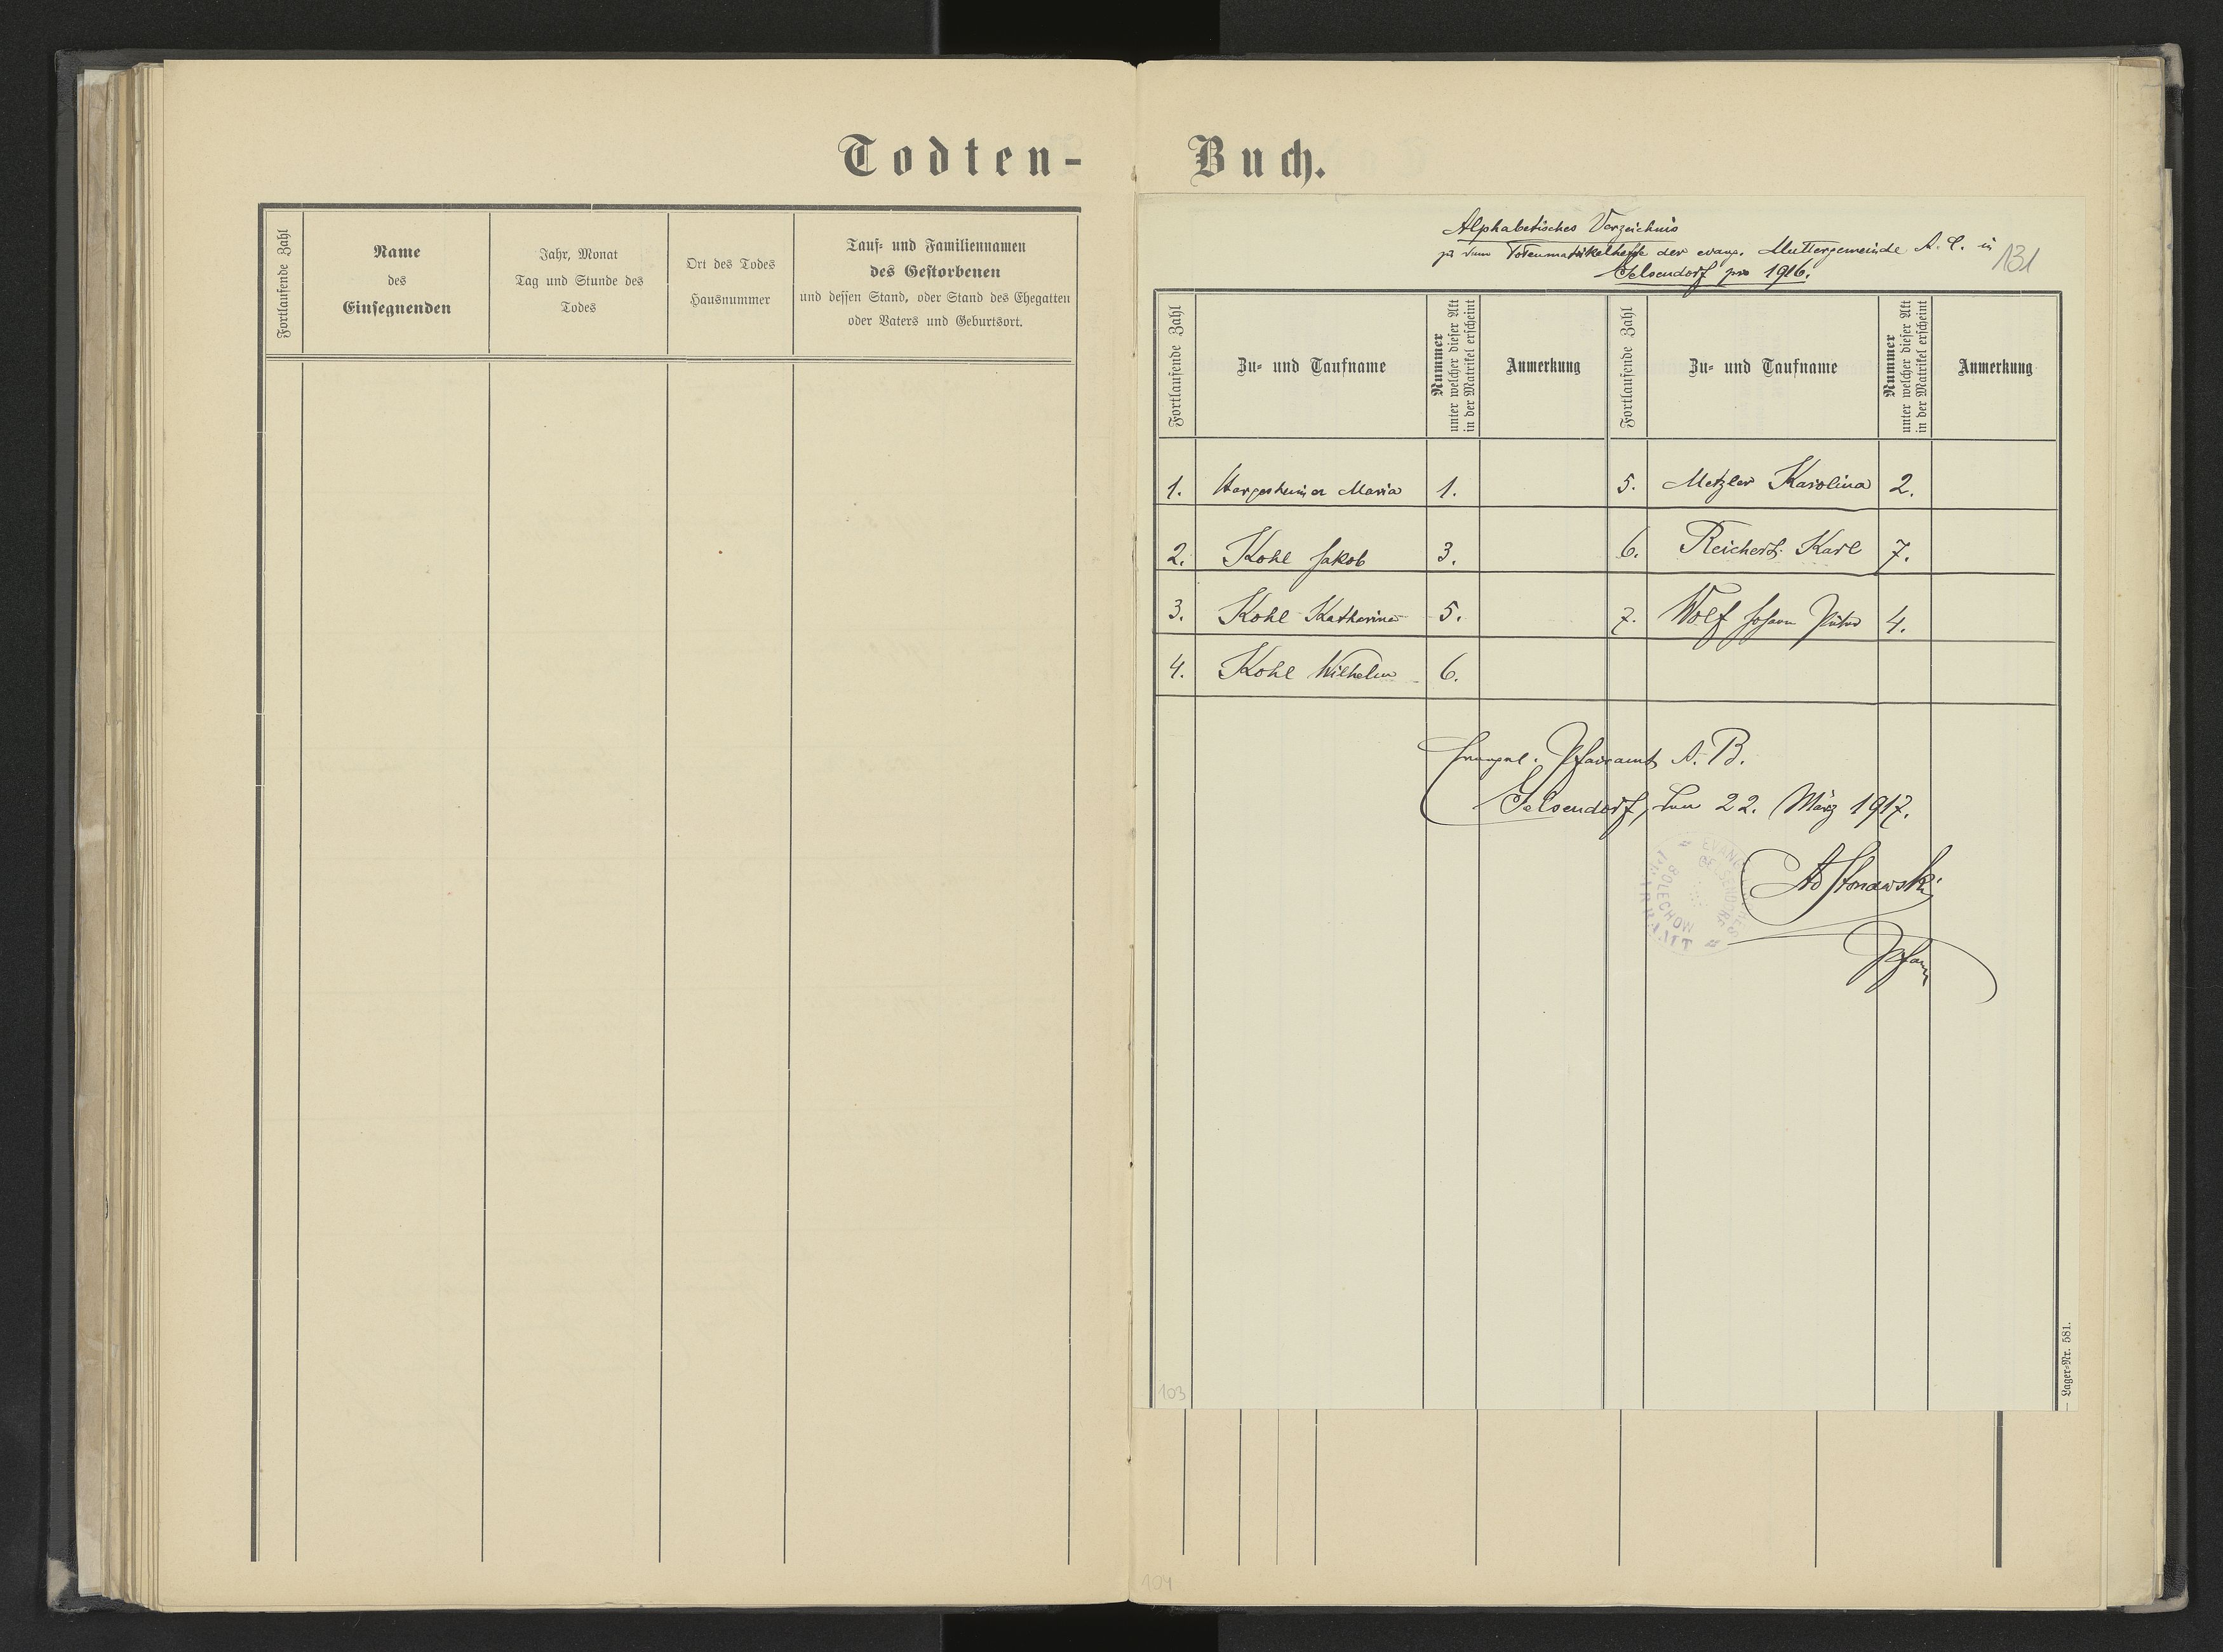 Todten-Buch.
Fortlaufende Zahl
Name
des
Einsegnenden
Jahr, Monat
Tag und Stunde des
Todes
Ort des Todes
Hausnummer
Tauf- und Familiennamen
des Gestorbenen
und dessen Stand, oder Stand des Ehegatten
oder Vaters und Geburtsort.
Alphabetisches Verzeichnis
zu dem Totenmatrikelhefte der evang. Muttergemeinde A. C. in
Gelsendorf pro 1916.
131
Fortlaufende Zahl
Zu- und Taufname
Nummer
unter welcher dieser Akt
in der Matrikel erscheint
Anmerkung
Fortlaufende Zahl
Zu- und Taufname
Nummer
unter welcher dieser Akt
in der Matrikel erscheint
Anmerkung
1. Hargesheimer Maria 1. 5. Metzler Karolina 2.
2. Kohl Jakob 3. 6. Reichert Karl 7.
3. Kohl Katharina 5. 7. Wolf Johann Peter 4.
4. Kohl Wilhelm 6.
Evangel. Pfarramt A. B.
Gelsendorf, den 22. März 1917.
EVANGELISCHES PFARRAMT
GELSENDORF
BOLECHOW
Stonawski
Pfarrer
Lager-Nr. 581.
103
104